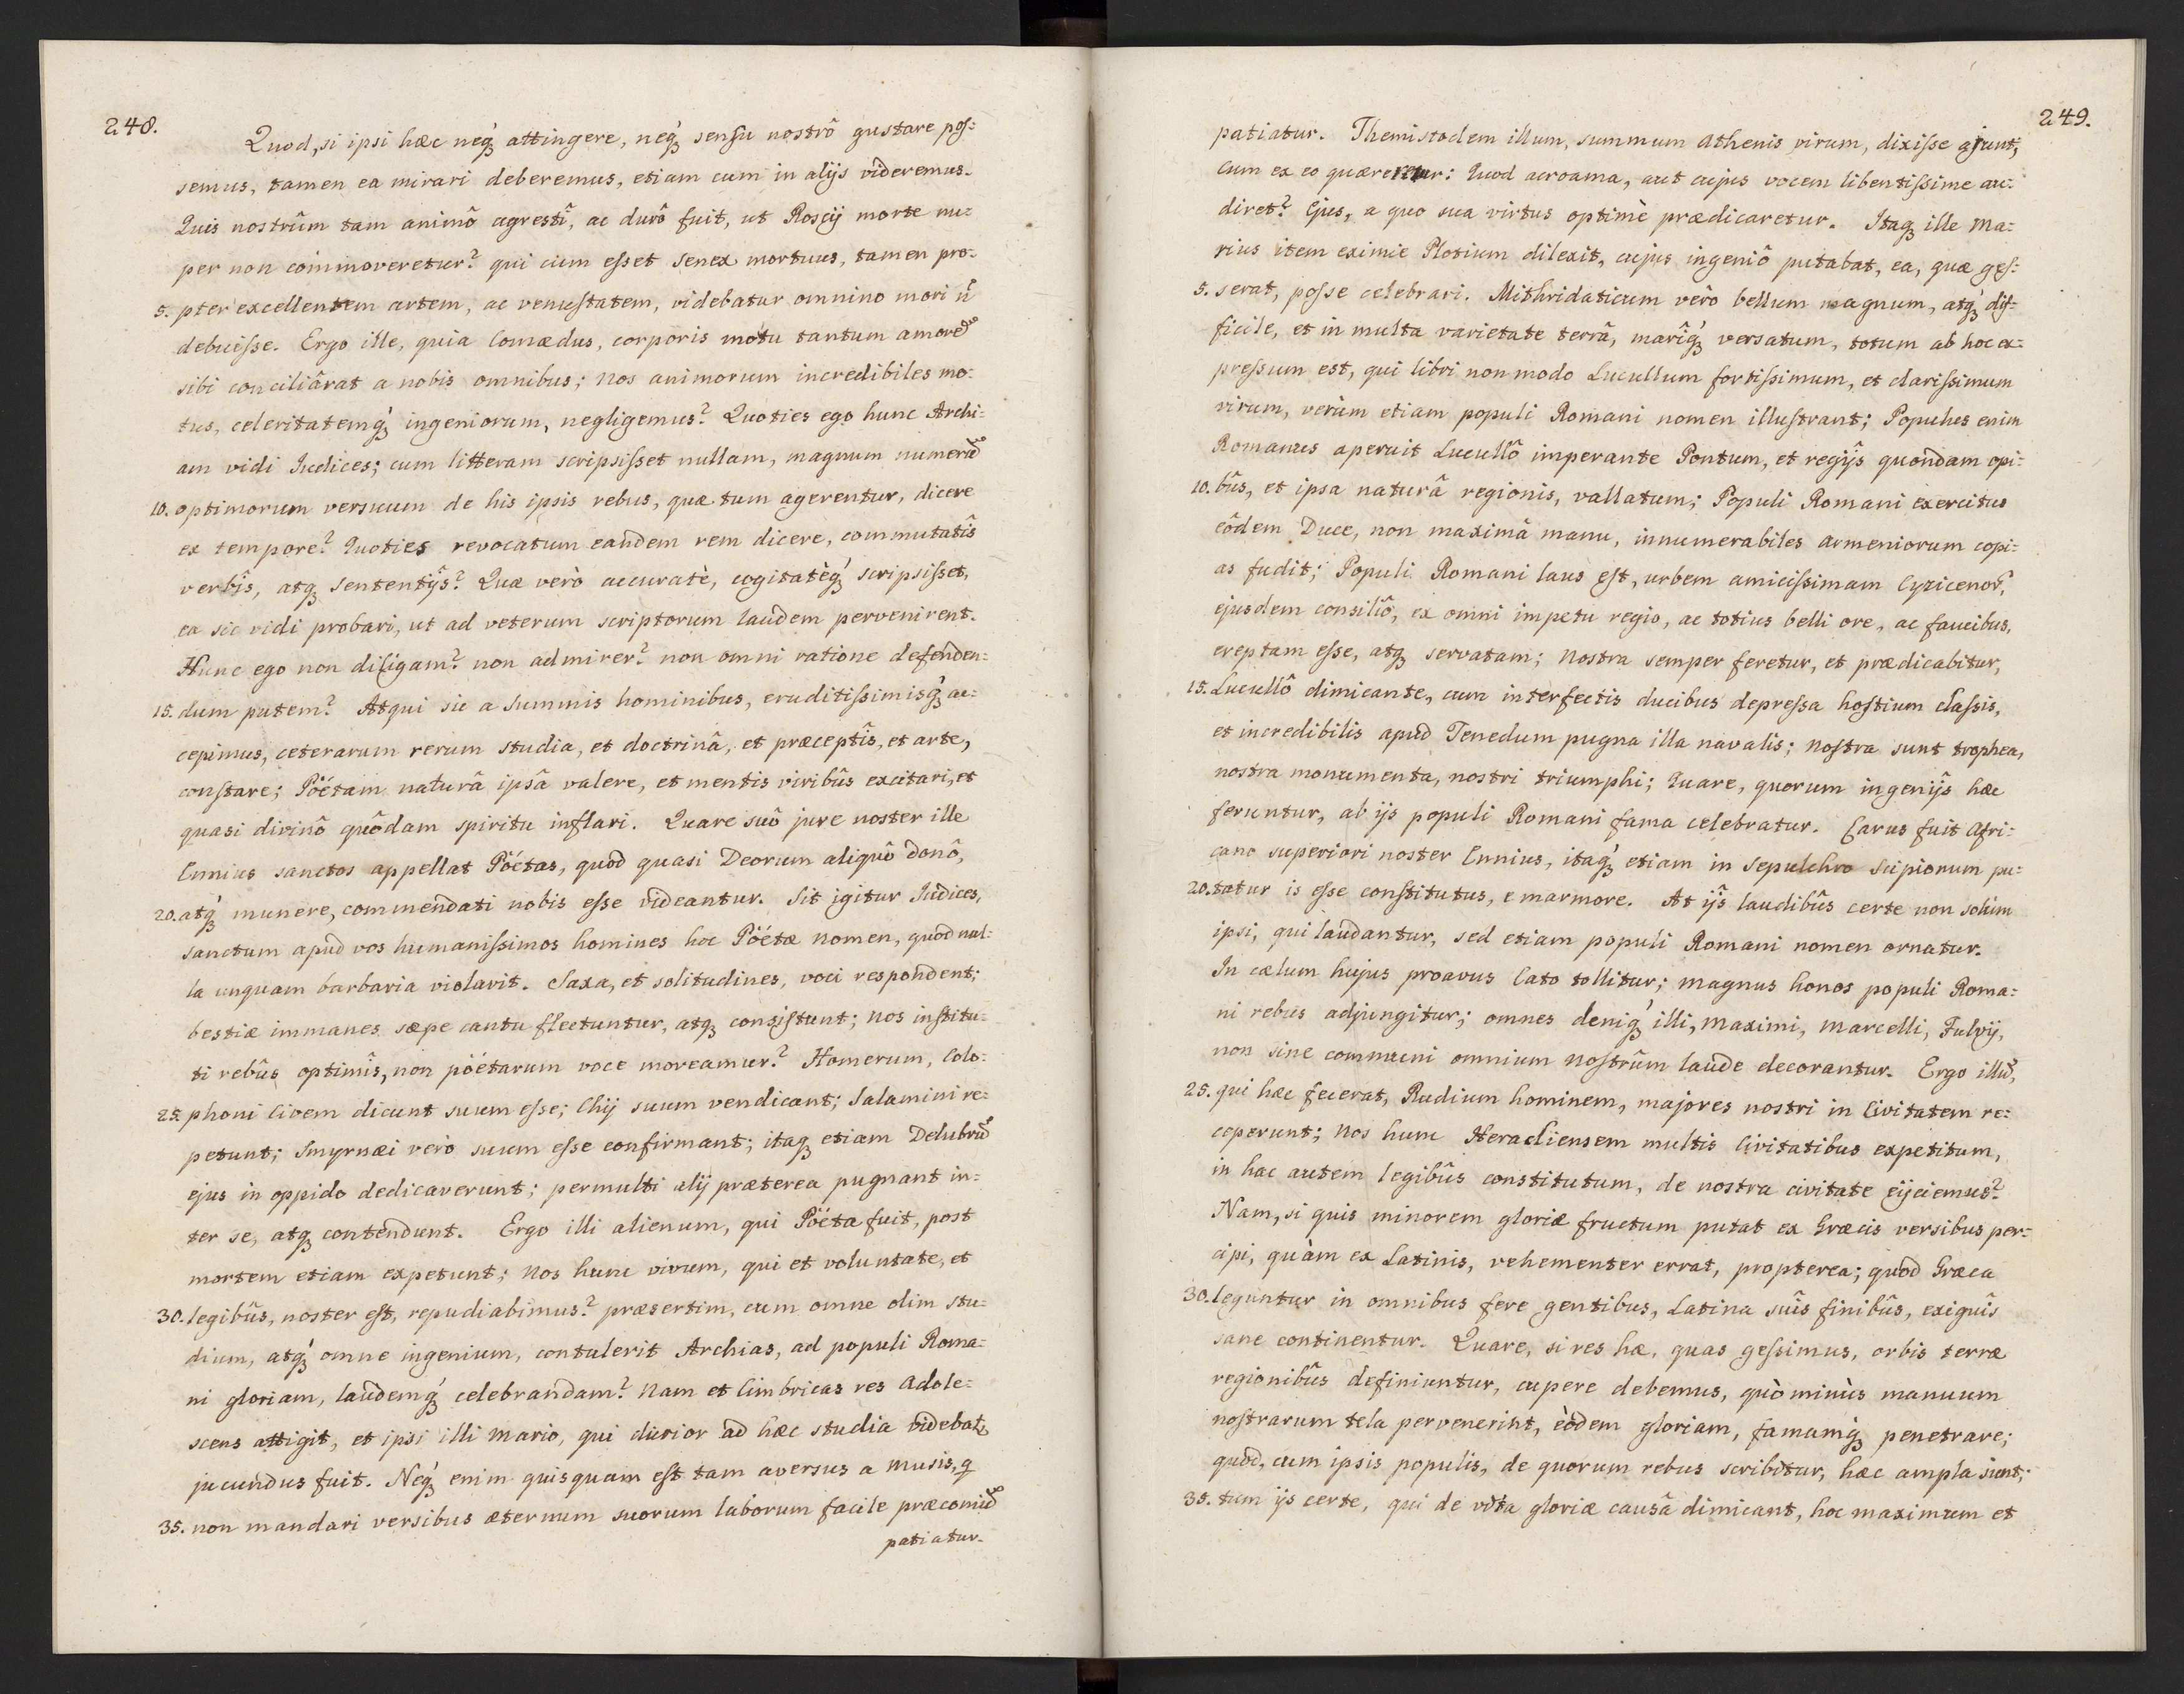 248.
Quod, si ipsi hæc neq́ʒ attingere, neq́ʒ sensu nostrô gustare pos:
semus, tamen ea mirari deberemus, etiam cum in alijs videremus.
Quis nostrûm tam animô agrestî, ac durô fuit, ut Roscij morte nu:
per non commoveretur? qui cum esset senex mortuus, tamen pro:
5. pter excellentem artem, ac venustatem, videbatur omnino mori n̄
debuisse. Ergo ille, quia Comædus, corporis motu tantum amorē
sibi conciliârat a nobis omnibus; nos animorum incredibiles mo:
tus, celeritatemq́ʒ ingeniorum, negligemus? Quoties ego hunc Archi:
am vidi Judices; cum litteram scripsisset nullam, magnum numerū
10. optimorum versuum de his ipsis rebus, quæ tum agerentur, dicere
ex tempore? Quoties revocatum eandem rem dicere, commutatîs
verbîs, atqʒ sententijs? Quæ verò accuratè, cogitatèq́ʒ scripsisset,
ea sic vidi probari, ut ad veterum scriptorum laudem pervenirent.
Hunc ego non diligam? non admirer? non omni ratione defenden:
15. dum putem? Atqui sic a summis hominibus, eruditissimisq́ʒ ac:
cepimus, ceterarum rerum studia, et doctrinâ, et præceptîs, et arte,
constare; Pöétam naturâ ipsâ valere, et mentis viribûs excitari, et
quasi divinô quôdam spiritu inflari. Quare suô jure noster ille
Ennius sanctos appellat Pöétas, quod quasi Deorum aliquô donô,
20. atq́ʒ munere, commendati nobis esse videantur. Sit igitur Judices,
sanctum apud vos humanissimos homines hoc Pöétæ nomen, quod nul:
la unquam barbaria violavit. Saxa, et solitudines, voci respondent;
bestiæ immanes sæpe cantu flectuntur, atqʒ consistunt; nos institu:
ti rebûs optimîs, non pöétarum voce moveamur? Homerum, Colo:
25. phoni Civem dicunt suum esse; Chij suum vendicant; Salamini re:
petunt; Smyrnæi verò suum esse confirmant; itaqʒ etiam Delubrū
ejus in oppido dedicaverunt; permulti alij præterea pugnant in:
ter se, atqʒ contendunt. Ergo illi alienum, qui Pöéta fuit, post
mortem etiam expetunt; nos hunc vivum, qui et voluntate, et
30. legibûs, noster est, repudiabimus? præsertim, cum omne olim stu:
dium, atq́ʒ omne ingenium, contulerit Archias, ad populi Roma:
ni gloriam, laudemq́ʒ celebrandam? Nam et Cimbricas res adole:
scens attigit, et ipsi illi Mario, qui durior ad hæc studia videbatr
jucundus fuit. Neq́ʒ enim quisquam est tam aversus a Musis, q̄
35. non mandari versibus æternum suorum laborum facile præconiū
patiatur.
249.
patiatur. Themistoclem illum, summum Athenis virum, dixisse ajunt;
cum ex eo quæreretur: Quod acroama, aut cujus vocem libentissime au:
diret? Ejus, a quo sua virtus optimè prædicaretur. Itaqʒ ille Ma:
rius item eximie Plotium dilexit, cujus ingeniô putabat, ea, quæ ges:
5. serat, posse celebrari. Mithridaticum verò bellum magnum, atq́ʒ dif:
ficile, et in multa varietate terrâ, marîq́ʒ versatum, totum ab hoc ex:
pressum est, qui libri non modo Lucullum fortissimum, et clarissimum
virum, verùm etiam populi Romani nomen illustrant; Populus enim
Romanus aperuit Lucullô imperante Pontum, et regijs quondam opi:
10. bûs, et ipsa naturâ regionis, vallatum; Populi Romani exercitus
eôdem Duce, non maximâ manu, innumerabiles Armeniorum copi:
as fudit; Populi Romani laus est, urbem amicissimam Cyzicenor̄,
ejusdem consiliô, ex omni impetu regio, ac totius belli ore, ac faucibus,
ereptam esse, atqʒ servatam; Nostra semper feretur, et prædicabitur,
15. Lucullô dimicante, cum interfectis ducibus depressa hostium classis,
et incredibilis apud Tenedum pugna illa navalis; nostra sunt trophea,
nostra monumenta, nostri triumphi; Quare, quorum ingenijs hæc
feruntur, ab ijs populi Romani fama celebratur. Carus fuit Afri:
cano superiori noster Ennius, itaq́ʒ etiam in sepulchro Scipionum pu:
20. tatur is esse constitutus, e marmore. At ijs laudibûs certe non solùm
ipsi, qui laudantur, sed etiam populi Romani nomen ornatur.
In cælum hujus proavus Cato tollitur; magnus honos populi Roma:
ni rebus adjungitur; omnes deniq́ʒ illi, Maximi, Marcelli, Fulvij,
non sine communi omnium nostrûm laude decorantur. Ergo illū,
25. qui hæc fecerat, Rudium hominem, majores nostri in Civitatem re:
ceperunt; Nos hunc Heracliensem multis Civitatibus expetitum,
in hac autem legibûs constitutum, de nostra civitate ejiciemus?
Nam, si quis minorem gloriæ fructum putat ex Græcis versibus per:
cipi, quàm ex Latinis, vehementer errat, propterea; quod Græca
30. leguntur in omnibus fere gentibus, Latina suîs finibûs, exiguîs
sane continentur. Quare, si res hæ, quas gessimus, orbis terræ
regionibûs definiuntur, cupere debemus, quò minùs manuum
nostrarum tela pervenerint, èodem gloriam, famamq́ʒ penetrare;
quod, cum ipsis populis, de quorum rebus scribitur, hæc ampla sunt;
35. tum ijs certe, qui de vita gloriæ causâ dimicant, hoc maximum et